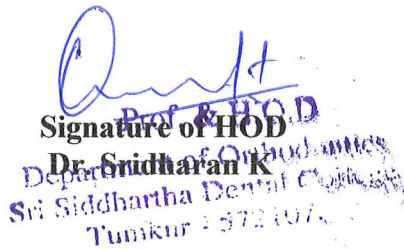 Prof. & H.O.D
Signature of HOD
Dr. Sridharan K
Department of Orthodontics
Sri Siddhartha Dental College
Tumkur - 572107.